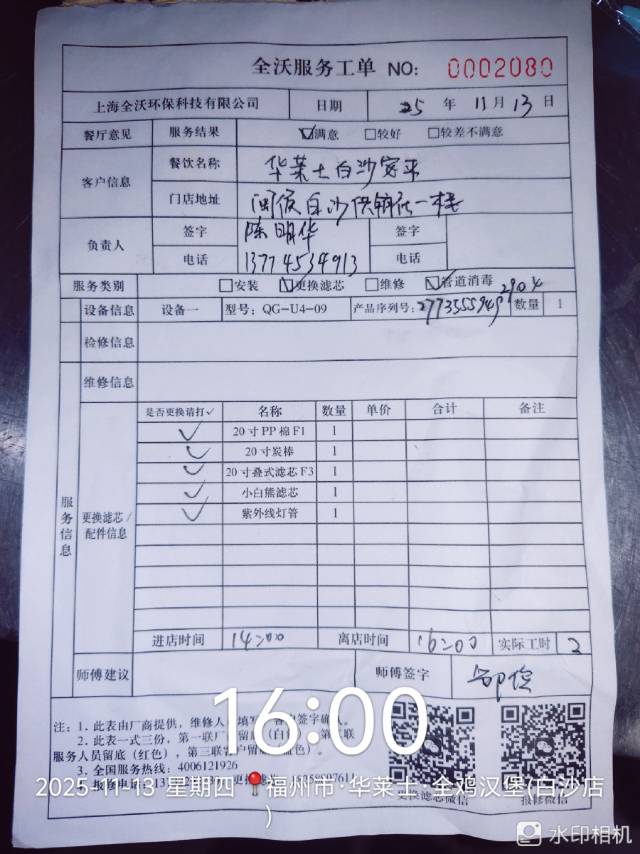 全沃服务工单 NO: 0002080
上海全沃环保科技有限公司 日期 25 年 11 月 13 日
餐厅意见 服务结果 ☑满意 □较好 □较差不满意
客户信息 餐饮名称 华莱士白沙
门店地址 闽侯白沙供销社一楼
负责人 签字 陈明华 签字
电话 13774534913 电话
服务类别 □安装 ☑更换滤芯 □维修 ☑管道消毒
设备信息 设备一 型号: QG-U4-09 产品序列号: 2773555949 2904 数量 1
检修信息
维修信息
服务信息
更换滤芯/配件信息
是否更换请打✓ 名称 数量 单价 合计 备注
✓ 20寸PP棉F1 1
✓ 20寸炭棒 1
✓ 20寸叠式滤芯F3 1
✓ 小白熊滤芯 1
✓ 紫外线灯管 1
进店时间 14:00 离店时间 16:00 实际工时 2
师傅建议 师傅签字
16:00
注: 1. 此表由厂商提供, 维修人 填写 签字确认。
2. 此表一式三份, 第一联厂 留底 (白 联
服务人员留底 (红色), 第三联客户留 色)。
3. 全国服务热线: 4006121926
4. 报修
2025-11-13 星期四 福州市·华莱士·全鸡汉堡(白沙店
)
更换滤芯微信 报修微信
水印相机